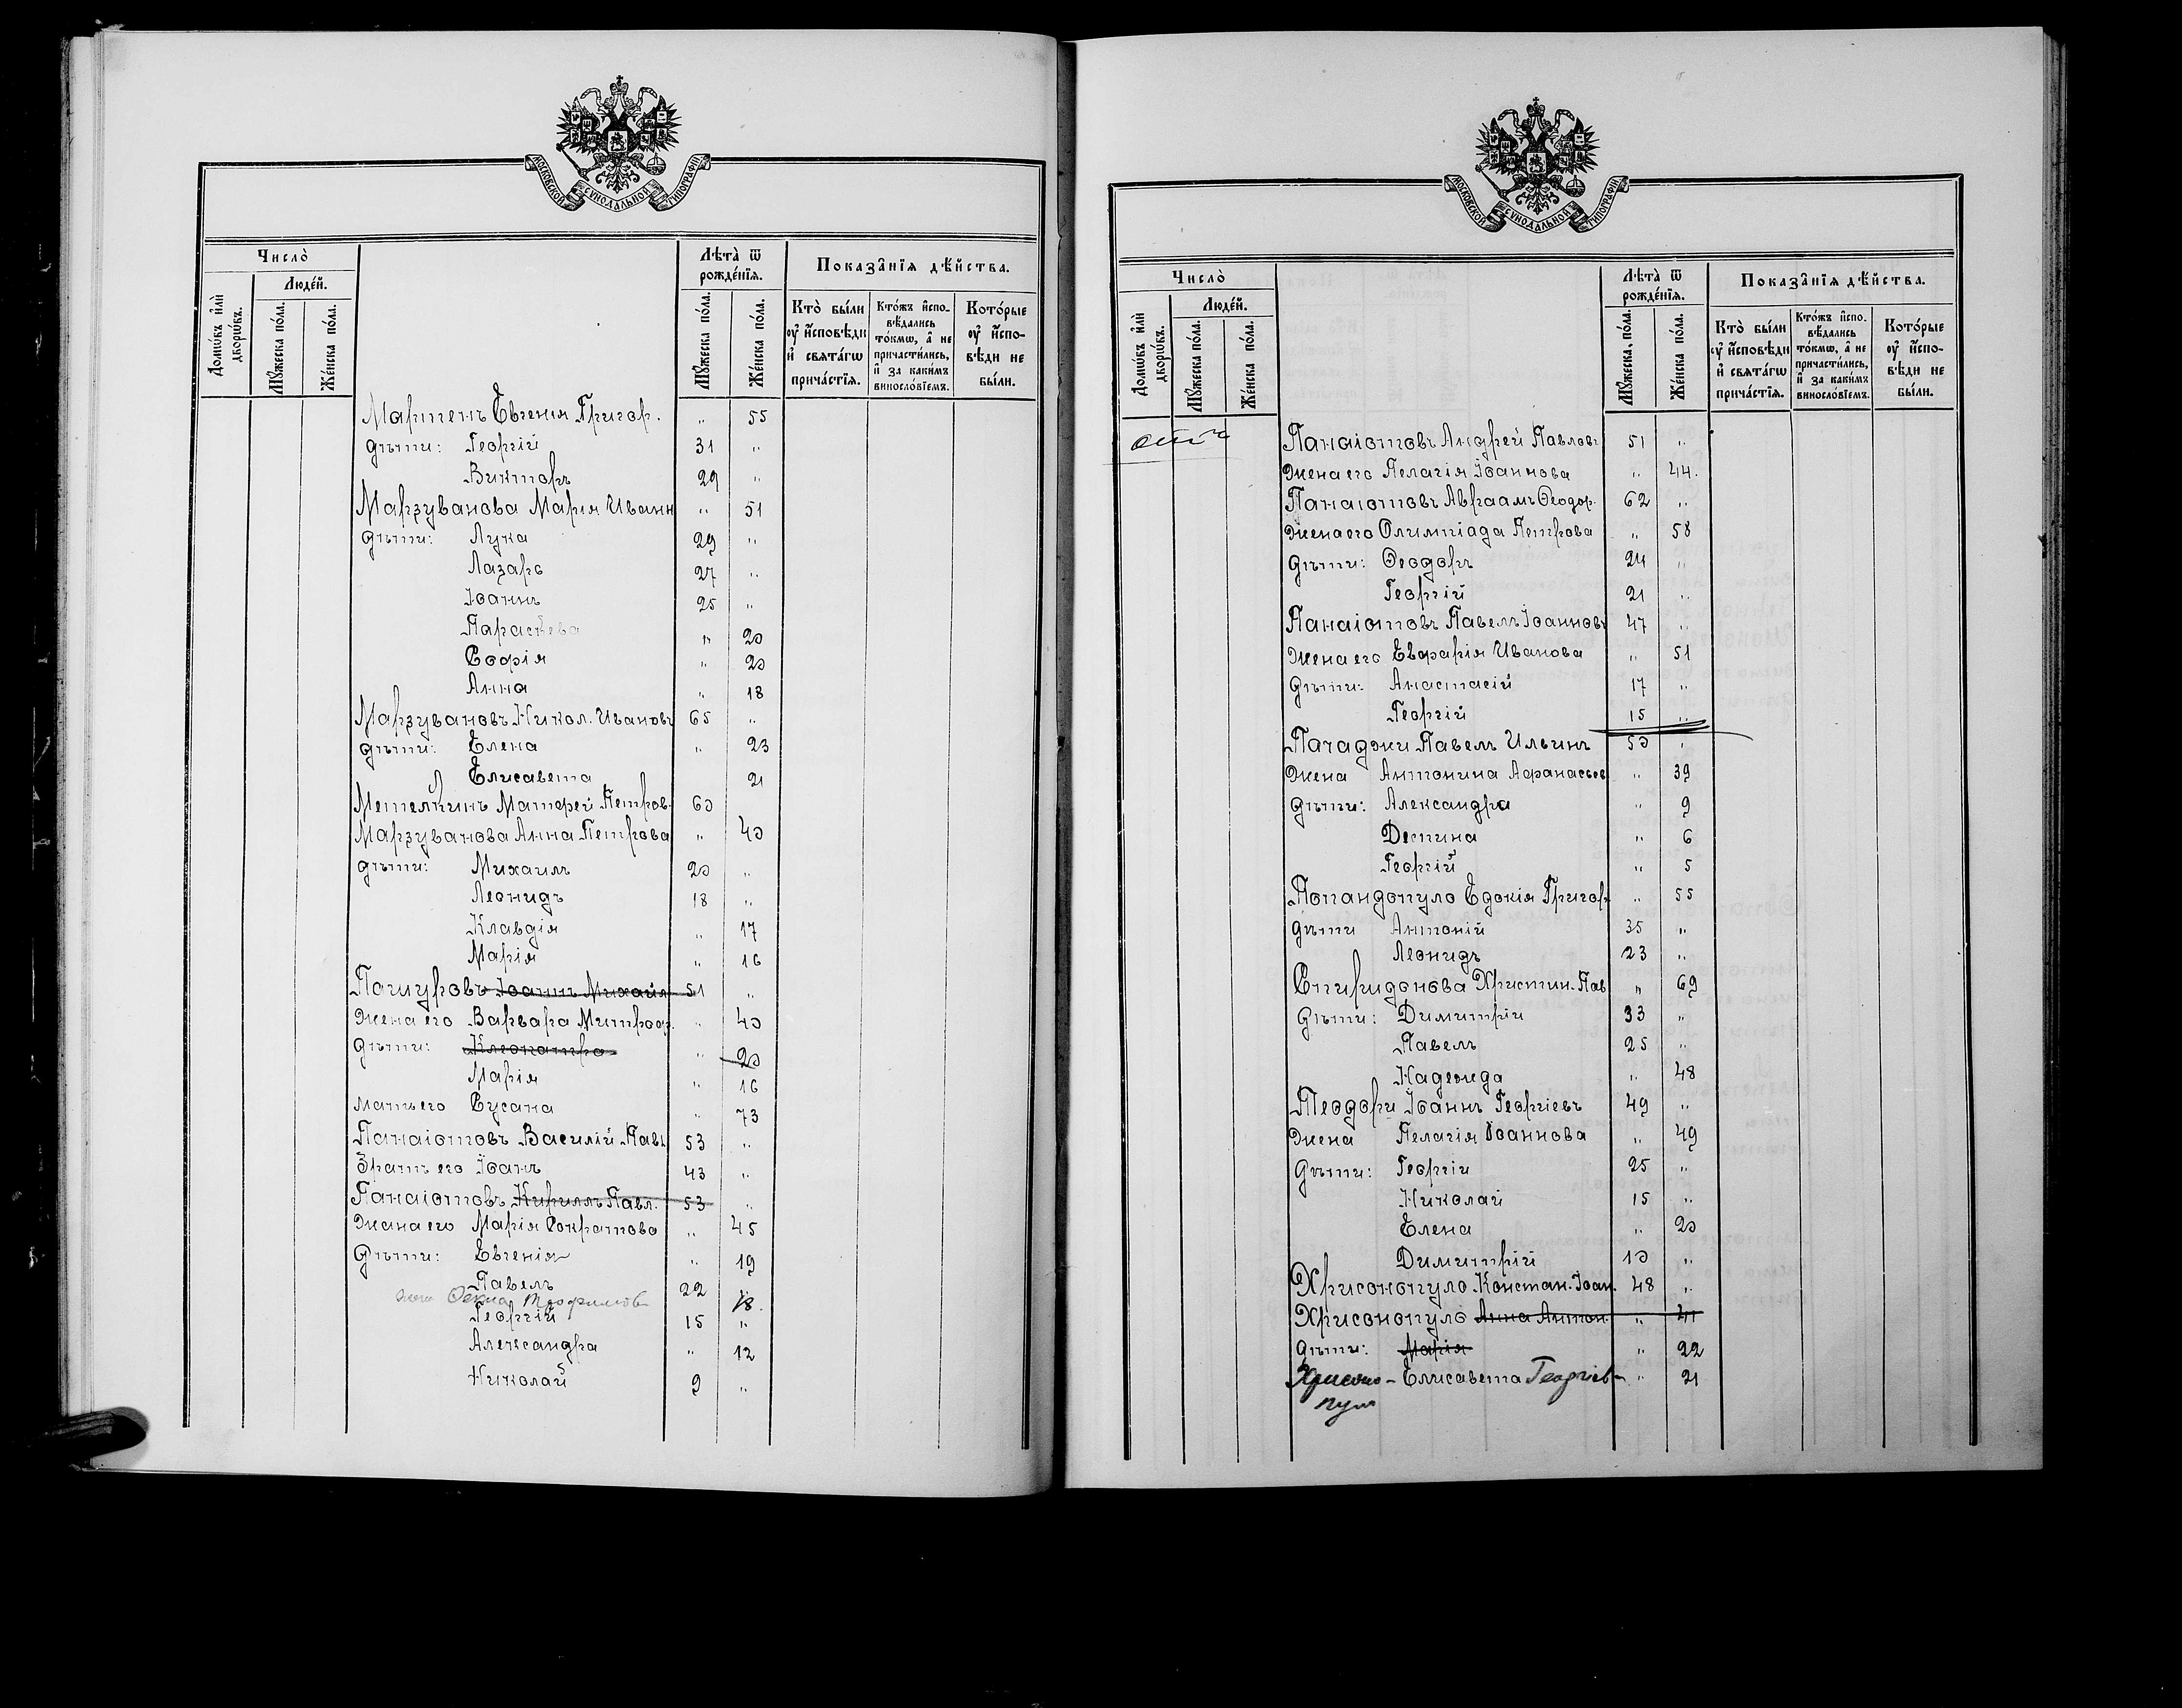 МОСКОВСКОЙ СѴНОДАЛЬНОЙ ТИПОГРАФІИ
Число̀
Людей.
Домѡвъ и҆лѝ дворѡвъ.
Мꙋжеска по́ла.
Же́нска по́ла.
Лѣта̀ ѿ рожде́нїѧ.
Мꙋжеска по́ла.
Же́нска по́ла.
Показа̑нїѧ дѣ́йства.
Кто̀ бы́ли ᲂу҆ и҆́сповѣди и҆ свѧта́гѡ прича́стїѧ.
Кто́жъ и҆спо-вѣ́дались то́кмѡ, а҆ не причасти́лись, и҆ за каки́мъ винослѡ́вїемъ.
Кото́рые ᲂу҆ и҆́спо-вѣди не бы́ли.
Мартенъ Евгенія Григор. " 55
дѣти: Георгій 31 "
Викторъ 29 "
Марзуванова Марія Иванн " 51
дѣти: Лука 29 "
Лазарь 27 "
Іоаннъ 25 "
Параскева " 20
Софія " 20
Анна " 18
Марзувановъ Никол. Ивановъ 65 "
дѣти: Елена " 23
Елисавета 21
Метелкинъ Матфей Петров. 60
Марзуванова Анна Петрова " 40
дѣти: Михаилъ 20 "
Леонидъ 18 "
Клавдія " 17
Марія " 16
Пачуровъ Іоаннъ Михайл 51 "
Жена его Варвара Митроф. " 40
дѣти: Клеопатра " 20
Марія " 16
мать его Сусана " 73
Панаіотовъ Василій Павл 53 "
Братъ его Іоанъ 43 "
Панаіотовъ Кириллъ Павл. 53 "
Жена его Марія Сократова " 45
Дѣти: Евгенія " 19
Павелъ 22 "
жена Трофимова 18.
Георгій 15 "
Александра " 12
Николай 9 "
МОСКОВСКОЙ СѴНОДАЛЬНОЙ ТИПОГРАФІИ
Число̀
Людей.
Домѡвъ и҆лѝ дворѡвъ.
Мꙋжеска по́ла.
Же́нска по́ла.
Лѣта̀ ѿ рожде́нїѧ.
Мꙋжеска, по́ла.
Же́нска по́ла.
Показа̑нїѧ дѣ́йства.
Кто̀ бы́ли ᲂу҆ и҆́сповѣди и҆ свѧта́гѡ прича́стїѧ.
Кто́жъ и҆спо-вѣ́дались то́кмѡ, а҆ не причасти́лись, и҆ за каки́мъ винослѡ́вїемъ.
Кото́рые ᲂу҆ и҆́спо-вѣди не бы́ли.
Панаіотовъ Андрей Павловъ 51 "
Жена его Пелагія Іоаннова " 44.
Панаіотовъ Авраамъ Ѳеодор. 62 "
Жена его Олимпіада Петрова " 58
дѣти: Ѳеодоръ 24 "
Георгій 21 "
Панаіотовъ Павелъ Іоанновъ 47 "
Жена его Евфрафія Иванова " 51
дѣти: Анастасій 17 "
Георгій 15 "
Пачаджи Павелъ Ильинъ 50 "
Жена Антонина Афанасьев " 39
дѣти: Александра " 9
Деспина " 6
Георгій " 5
Попандопуло Едокія Григор " 55
дѣти Антоній 35 "
Леонидъ 23 "
Спиридонова Христин. Пав " 69
дѣти: Димитрій 33 "
Павелъ 25 "
Надежда " 48
Теодори Іоаннъ Георгіевъ 49 "
Жена Пелагія Іоаннова " 49
Дѣти: Георгій 25 "
Николай 15 "
Елена " 20
Димитрій 10 "
Хрисонопуло Констан. Іоан. 48 "
Хрисонопуло Анна Антон. " 41
дѣти: Марія " 22
Хрисоно- Елисавета Георгіев " 21
пуло